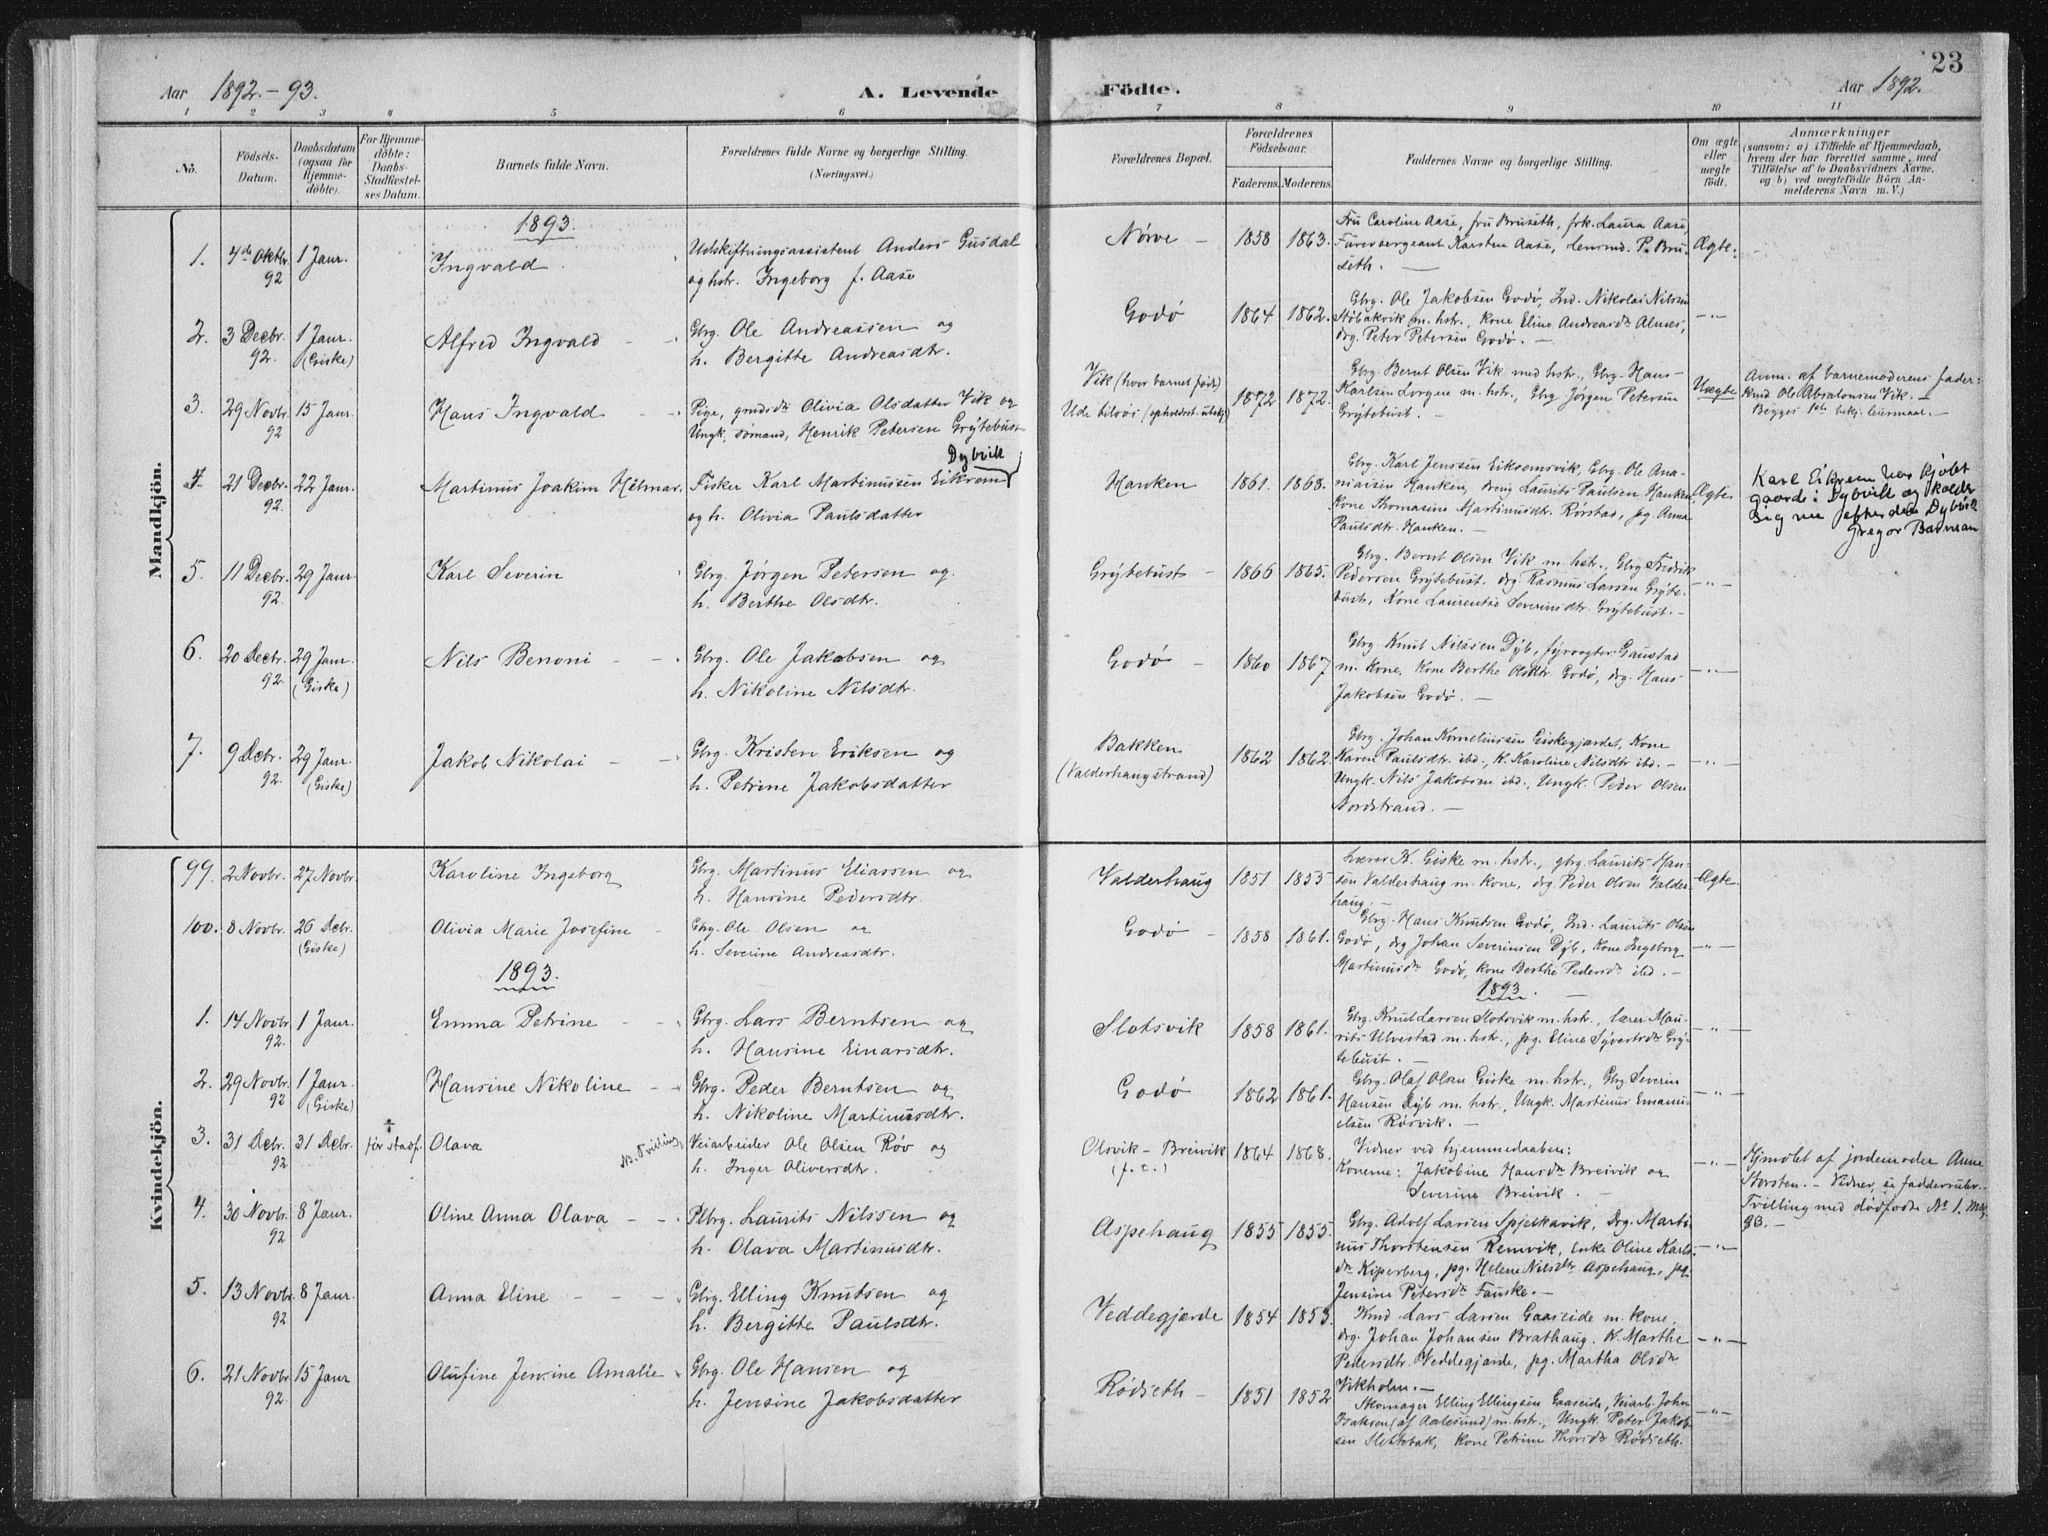 23
Aar 1892.-93.
A. Levende
Födte.
Aar 1892.
1 2 3 4 5 6 7 8 9 10 11
No.
Födsels-Datum.
Daabsdatum (ogsaa for Hjemmedöbte).
For Hjemmedöbte: Daabs-Stadfæstelses Datum.
Barnets fulde Navn.
Forældrenes fulde Navne og borgerlige Stilling.
(Næringsvei.)
Forældrenes Bopæl.
Forældrenes Födselsaar.
Faderens. Moderens.
Faddernes Navne og borgerlige Stilling.
Om ægte eller uægte födt.
Anmærkninger
(saasom: a) i Tilfælde af Hjemmedaab, hvem der har forrettet samme, med Tilföielse af to Daabsvidners Navne, og b) ved uægtefödte Börn Anmelderens Navn m. V.)
Mandkjön.
1893.
1. 4de Oktbr. 92 1 Janr. Ingvald
Udskiftningsassistent Anders Gusdal
og hstr. Ingeborg f. Aase
Nørve 1858 1863.
Fru Caroline Aase, fru Bruseth, frk. Laura Aase,
Furersergeant Karsten Aase, Lensmd. P. Bru-
seth. —
Ægte.
2. 3 Decbr. 92. 1 Janr. (Giske) Alfred Ingvald
Gbrg. Ole Andreassen og
h. Bergitte Andreasdtr.
Godø 1864 1862.
Gbrg. Ole Jakobsen Godø, Ind. Nikolai Nilssen
Støbakvik m. hstr., Kone Eline Andreasdtr Alnæs,
drg. Peter Petersen Godø. —
—"—
3. 29 Novbr. 92 15 Janr. Hans Ingvald
Pige, grmdsdtr Olivia Olsdatter Vik og
Ungk, sømand, Henrik Petersen Grytebust
Vik (hvor barnet født)
Ude tilsøs (opholdsst. ubekj.)
1872 1872.
Gbrg. Bernt Olsen Vik med hstr., Gbrg. Hans
Karlsen Lorgen m. hstr., Gbrg Jørgen Petersen
Grytebust. —
Uægte
Anm. af barnemoderens fader:
Kmd Ole Absalonsen Vik. —
Begges 1ste bekj. leiermaal. —
4. 21 Decbr. 92. 22 Janr. Martinus Joakim Hilmar.
Dybvik
Fisker Karl Martinussen Eikrem
og h. Olivia Paulsdatter
Hanken 1861. 1868.
Gbrg. Karl Jenssen Eiksemsvik, Gbrg. Ole Ana-
niassen Hanken, dreng Laurits Paulsen Hanken,
Kone Thomasine Martinusdtr. Rørstad, pg. Anna
Paulsdtr. Hanken. —
Ægte.
Karl Eikrem har kjøbt
gaard i Dybvik og kalder
sig nu efter den Dybvik
Gregor Bauman
5. 11 Decbr. 92. 29 Janr. Karl Severin
Gbrg. Jørgen Petersen og
h. Berthe Olsdtr.
Grytebust 1866 1865.
Gbrg. Bernt Olsen Vik m. hstr., Gbrg Fredrik
Pedersen Grytebust. drg Rasmus Larsen Gryte-
bust, Kone Laurentse Severinsdtr. Grytebust. —
—"—
6. 20 Decbr. 92. 29 Janr. (Giske) Nils Benoni
Gbrg. Ole Jakobsen og
h. Nikoline Nilsdtr.
Godø 1860 1867
Gbrg. Knut Nilssen Dyb, fyrvogter Gaustad
m. Kone, Kone Berthe Olsdtr Godø, drg. Hans
Jakobsen Godø. —
—"—
7. 9 Debr. 92. 29 Janr. (Giske) Jakob Nikolai
Gbrg. Kristen Eriksen og
h. Petrine Jakobsdatter
Bakken
(Valderhaugstrand)
1862 1862.
Gbrg. Johan Korneliussen Giskegjerdet, Kone
Karen Paulsdtr. ibd., K. Karoline Nilsdtr ibd. —
Ungk. Nils Jakobsen ibd., Ungk. Peder Olsen
Nordstrand. —
—"—
Kvindekjön.
99. 2 Novbr. 27 Novbr Karoline Ingeborg
Gbrg. Martinus Eliassen og
h. Hansine Pedersdtr.
Valderhaug 1851 1853
Lærer K. Giske m. hstr., gbrg. Laurits Han-
sen Valderhaug m. Kone, drg. Peder Olsen Valder-
haug. —
Ægte
100. 8 Novbr. 26 Debr. (Giske) Olivia Marie Josefine
Gbrg. Ole Olsen og
h. Severine Andreasdtr.
Godø 1858 1861.
Gbrg. Hans Knutsen Godø, Ind. Laurits Olsen
Godø, drg Johan Severinsen Dyb, Kone Ingeborg
Martinusdtr Godø, Kone Berthe Pedersdtr ibd. —
—"—
1893.
1893.
1. 14 Novbr. 92. 1 Janr. Emma Petrine
Gbrg. Lars Berntsen og
h. Hansine Einarsdtr.
Slotsvik 1858 1861.
Gbrg. Knut Larsen Slotsvik m. hstr., lærer Mau-
rits Ulvestad m. hstr., pg. Eline Syvertsdtr Gry-
tebust. —
—"—
2. 29 Novbr. 92 1 Janr. (Giske) Hansine Nikoline
Gbrg. Peder Berntsen og
h. Nikoline Martinusdtr.
Godø 1862 1861.
Gbrg. Olaf Olsen Giske m. hstr., Gbrg Severin
Hansen Dyb m. hstr., Ungk. Martinus Emanu-
elsen Rørvik. —
—"—
3. 31 Debr. 92 31 Debr. † før stadf. Olava NB. Tvilling
Veiarbeider Ole Olsen Røv og
h. Inger Oliversdtr.
Olsvik - Breivik
(p. t.)
1864 1868.
Vidner ved hjemmedaaben:
Konerne: Jakobine Hansdtr Breivik og
Severine Breivik. —
—"—
Hjmdbt af jordemoder Anne
Storsten. — Vidner, se fadderrubr. —
Tvilling med dødfødte No 1. Mk
93. —
4. 30 Novbr. 92 8 Janr. Oline Anna Olava
Plbrg. Laurits Nilssen og
h. Olava Martinusdtr.
Aspehaug 1855 1855.
Gbrg. Adolf Larsen Spjelkavik, Drg. Marti-
nus Thorstensen Remvik, Enke Oline Karls-
dtr Kipperberg, pg. Helene Nilsdtr Aspehaug, pg.
Jensine Petersdtr Fauske. —
—"—
5. 13 Novbr. 92 8 Janr. Anna Eline
Gbrg. Elling Knutsen og
h. Bergitte Paulsdtr.
Veddegjerde 1854 1853.
Kmd Lars Larsen Gaaseide m. kone,
drg. Johan Johansen Brathaug, K. Marthe
Pedersdtr. Veddegjerde, pg. Martha Olsdtr
Vikholm. —
—"—
6. 21 Novbr. 92. 15 Janr Olufine Jensine Amalie
Gbrg. Ole Hansen og
h. Jensine Jakobsdatter
Rødseth 1851 1852
Skomager Elling Ellingsen Gaaseide, Veiarb. John
Isaksen (af Aalesund) m. hstr., Ungk. Peter Jakob-
sen Slettebak, Kone Petrine Thorsdtr Rødseth.
—"—